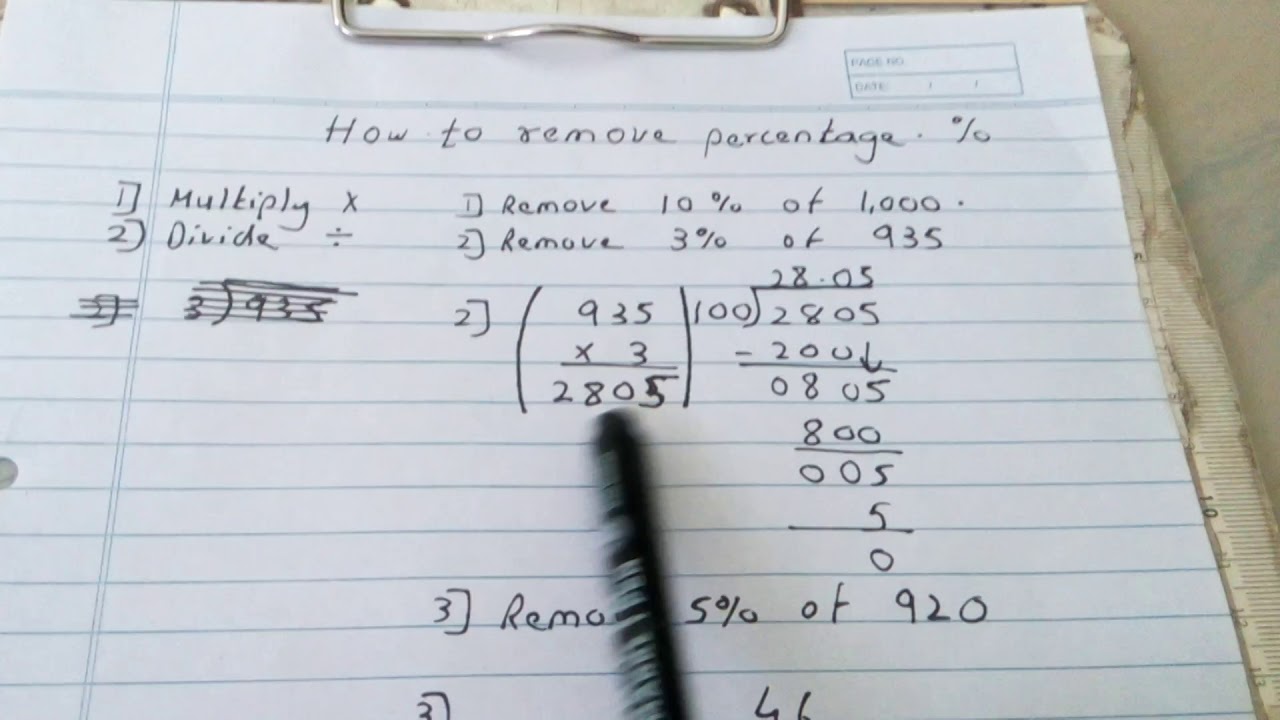 PAGE NO.
DATE: / /
How to remove percentage. %
1] Multiply × 1] Remove 10% of 1,000.
2] Divide ÷ 2] Remove 3% of 935
28.05
3)935 2] 935 100)2805
× 3 - 200↓
2805 0805
800
005
5
0
3] Remo 5% of 920
3] 46